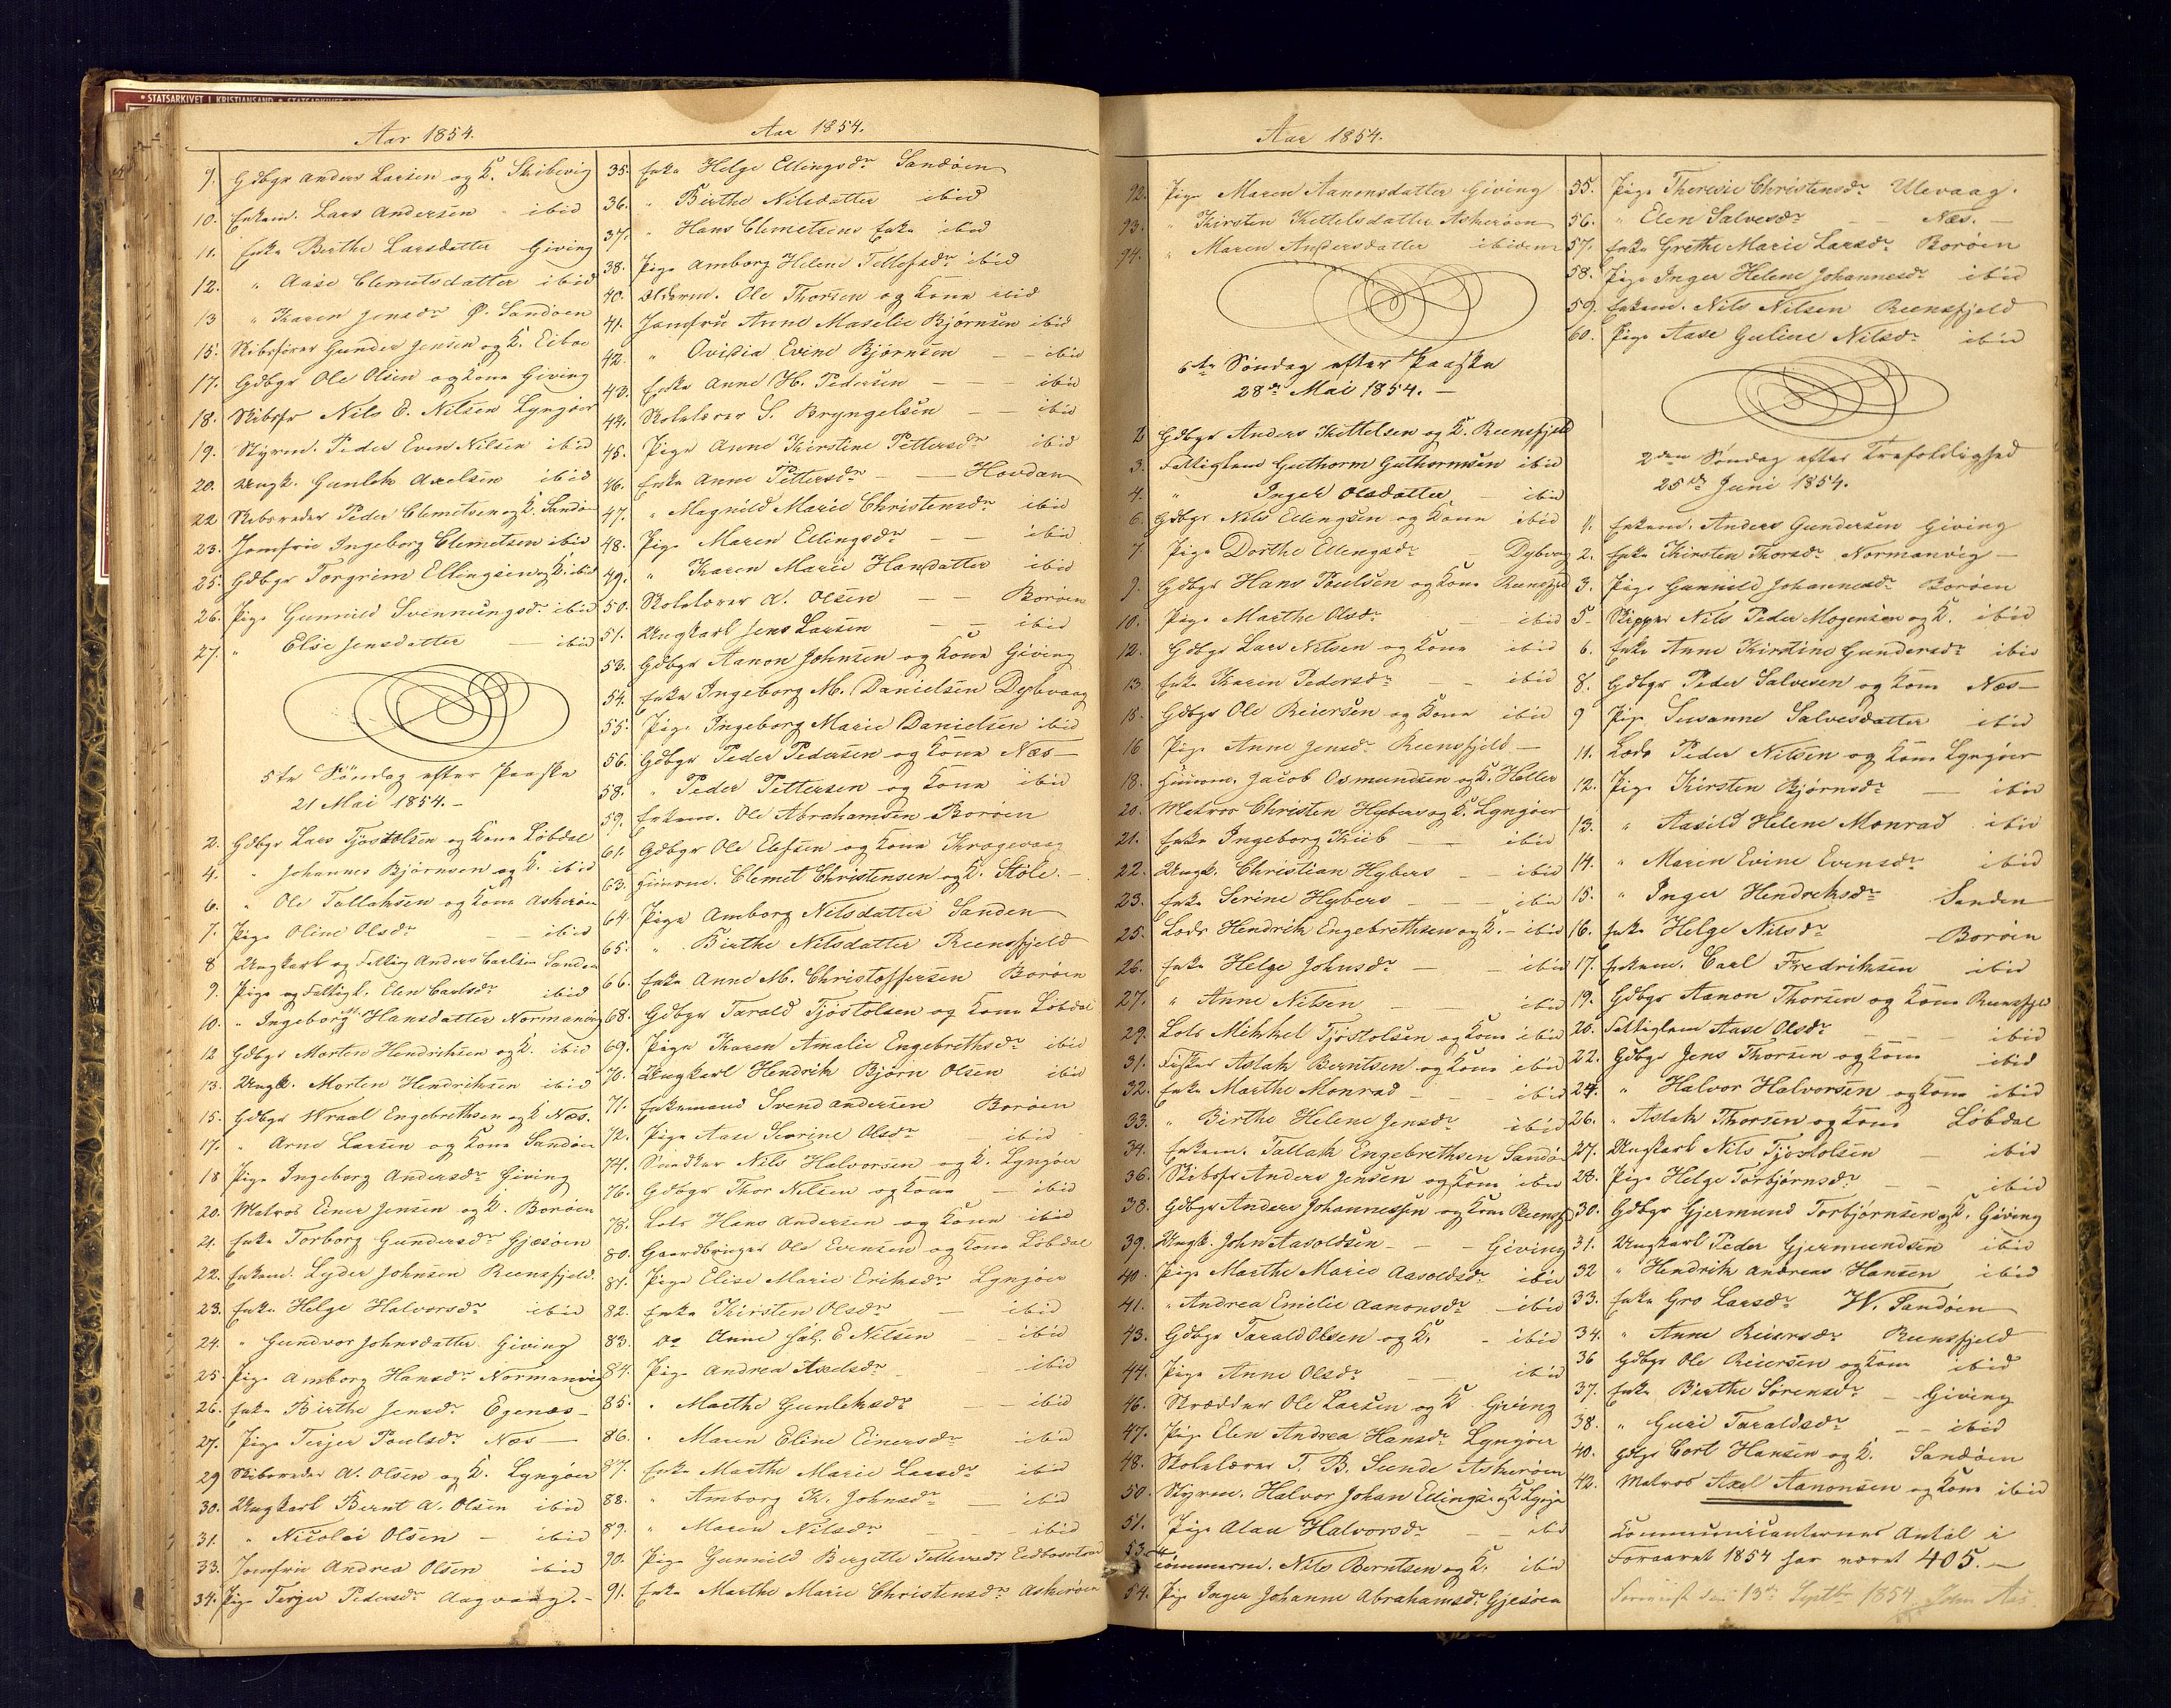 STATSARKIVET I KRISTIANSAND
Aar 1854.
9. Gdbgr Anders Larsen og K. Skibevig
10. Enkem. Lars Andersen ibid
11. Enke Birthe Larsdatter Giving
12. " Aase Clemetsdatter ibid
13 " Karen Jensdr Ø. Sandøen
15. Skibsfører Gunder Jensen og K. Eiboe
17. Gdbgr Ole Olsen og Kone Giving
18. Skibsfr Nils E. Nilsen Lyngøer
19. Styrm. Peder Even Nilsen ibid
20. Ungk. Gunlek Axelsen ibid
22 Skibsreder Peder Clemetsen og K. Sandø
23. Jomfrue Ingeborg Clemetsen ibid
25. Gdbgr Torgrim Ellingsen og K. ibid
26. Pige Gunnild Svennungsdr ibid
27. " Elise Jensdatter — ibid
5te Søndag efter Paaske
21 Mai 1854.–
2. Gdbgr Lars Tjøstolsen og Kone Løbdal
4. " Johannes Bjørnsen og K. ibid
6. " Ole Tallaksen og Kone Askerøen
7. Pige Oline Olsdr — ibid
8 Ungkarl og Fattig Anders Carlsen Sanden
9. Pige og Fattigl. Elen Carlsdr ibid
10. " Ingeborg M. Hansdatter Normanvig
12 Gdbgr Morten Hendriksen og K. ibid
13. Ungk. Morten Hendriksen ibid
15. Gdbgr Wraal Engebrethsen og K Næs.
17. " Arne Larsen og Kone Sandøen
18 Pige Ingeborg Andersdr Giving
20. Matros Einer Jensen og K. Borøen
21. Enke Torborg Gundersdr Gjesøen
22. Enkem. Lyder Johnsen Reensfjeld.
23. Enke Helge Halvorsdr ibid
24. " Gundvor Johnsdatter Giving
25. Pige Amborg Hansdr Normanvig
26. Enke Birthe Jensdr Egenæs –
27. Pige Terjer Poulsdr Næs —
29 Skibsreder A. Olsen og K. Lyngøer
30. Ungkarl Bernt A. Olsen ibid
31. " Nicolai Olsen – ibid
33. Jomfrue Andrea Olsen ibid
34. Pige Terjer Pedersdr Aagvaag. –
Aar 1854.
35. Enke Helge Ellingsdr Sandøen
36. " Birthe Nilsdatter ibid
37. " Hans Clemetsens Enke ibid
38. Pige Amborg Helene Tellefsdr ibid
40. Olderm. Ole Thorsen og Kone ibid
41. Jomfru Anne Maselie Bjørnsen ibid
42. " Ovidia Evine Bjørnsen — ibid
43. Enke Anne H. Pedersen — ibid
44. Skolelærer S. Bryngelsen — ibid
45. Pige Anne Kirstine Pettersdr ibid
46. Enke Anne Pettersdr — Hovdan
47. " Magnild Marie Christensdr ibid
48. Pige Maren Ellingsdr — ibid
49. " Karen Marie Hansdatter ibid
50. Skolelærer A. Olsen — Borøen
51. Ungkarl Jens Larsen — ibid
53. Gdbgr Aanon Johnsen og Kone Giving
54. Enke Ingeborg M. Danielsen Dybvaag
55. Pige Ingeborg Marie Danielsen ibid
56. Gdbgr Peder Pedersen og Kone Næs —
58. " Peder Pettersen og Kone ibid
59. Enkem. Ole Abrahamsen Borøen
61. Gdbgr Ole Elefsen og Kone Krogevaag
63. Huusm. Clemet Christensen og K. Støle. –
64. Pige Amborg Nilsdatter Sanden
65. " Birthe Nilsdatter Reensfjeld
66. Enke Anne M. Christoffersen Borøen
68. Gdbgr Tarald Tjøstolsen og Kone Løbdal
69. Pige Karen Amalie Engebrethsdr ibid
70. Ungkarl Hendrik Bjørn Olsen ibid
71. Enkemand Svend Andersen Borøen
72. Pige Aase Severine Olsdr ibid
74. Snedker Nils Halvorsen og K. Lyngøer
76. Gdbgr Thor Nilsen og Kone — ibid
78. Lods Hans Andersen og Kone ibid
80. Gaardbruger Ole Evensen og Kone Løbdal
81. Pige Elise Marie Eriksdr Lyngøer
82. Enke Kirsten Olsdr — ibid
83. Do Anne Sal. E Nilsen — ibid
84. Pige Andrea Axelsdr — ibid
85. " Marthe Gunleksdr — ibid
86. " Maren Eline Einersdr ibid
87. Enke Marthe Marie Larsdr ibid
88. " Amborg K. Johnsdr ibid
89. " Maren Nilsdr — ibid
90. Pige Gunnild Birgitte Tellevsdr
91. Enke Marthe Marie Christensdr Askerøen
Aar 1854.
92. Pige Maren Aanonsdatter Giving
93. " Kirsten Kettelsdatter Askerøen
94. " Maren Andersdatter ibidem
6te Søndag efter Paaske
28de Mai 1854. –
2 Gdbgr Anders Kittelsen og K. Reensfjeld
3. Fattiglem Guthorm Guthormsen ibid
4. " Inger Olsdatter – ibid
6. Gdbgr Nils Ellingsen og Kone ibid
7. Pige Dorthe Ellingsdr – Dybvaag
9. Gdbgr Hans Poulsen og Kone Reensfjeld
10. Pige Marthe Olsdr – ibid
12. Gdbgr Lars Nilsen og Kone ibid
13. Enke Karen Pedersdr — ibid
15. Gdbgr Ole Reiersen og Kone ibid
16 Pige Anne Jensdr Reensfjeld –
18. Huusm. Jacob Osmundsen og K. Holler
20. Matros Christen Hybers og K. Lyngøer
21. Enke Ingeborg Kiib — ibid
22. Ungk. Christian Hybers – ibid
23. Enke Serine Hybers — ibid
25. Lods Hendrik Engebrethsen og K. – ibid
26. Enke Helge Johnsdr — ibid
27. " Anne Nilsen — ibid
29. Lods Mikkel Tjøstolsen og Kone ibid
31. Fisker Aslak Berntsen og Kone ibid
32. Enke Marthe Monrad — ibid
33. " Birthe Helene Jensdr ibid
34. Enkem. Tallak Engebrethsen Sandø
36. Skibsfr Anders Jensen og Kone ibid
38. Gdbgr Anders Johannessen og Kone Reensf
39. Ungk. John Aasoldsen — Giving
40. Pige Marthe Marie Aasoldsdr ibid
41. " Andrea Emilie Aanonsdr – ibid
43. Gdbgr Tarald Olsen og K. – ibid
44. Pige Anne Olsdr — ibid
46. Skrædder Ole Larsen og K Giving
47. Pige Elen Andrea Hansdr Lyngøer
48. Skolelærer T. B. Sunde Askerøen
50. Styrm. Halvor Johan Ellings. og K Lyngø
51. Pige Alau Halvorsdr — ibd
53. Tømmerm. Nils Berntsen og K. ibid
54. Pige Inger Johanne Abrahamsdr Gjesøen
55. Pige Theresie Christensdr Ulevaag.
56. " Elen Salvesdr — Næs. –
57. Enke Grethe Marie Larsdr Borøen
58. Pige Inger Helene Johannesdr ibid
59. Enkem. Nils Nilsen Reensfjeld
60. Pige Aase Guline Nilsdr ibid
2den Søndag efter Trefoldighed
25de Juni 1854.
1. Enkem. Anders Gundersen Giving
2. Enke Kirsten Thorsdr Normanvig –
3. Pige Gunnild Johannesdr Borøen
5– Skipper Nils Peder Mogensen og K. ibid
6. Enke Anne Kirstine Gundersdr ibid
8. Gdbgr Peder Salvesen og Kone Næs –
9 Pige Susanne Salvesdatter ibid
11. Lods Peder Nilsen og Kone Lyngøer
12. Pige Kirsten Bjørnsdr — ibid
13. " Aasild Helene Monrad ibid
14. " Maren Evine Evensdr ibid
15. " Inger Hendriksdr Sanden
16. Enke Helge Nilsdr Borøen
17. Enkem. Carl Fredriksen ibid
19. Gdbgr Aanon Thorsen og Kone Reensfjeld
20. Fattiglem Aase Olsdr — ibid
22. Gdbgr Jens Thorsen og Kone ibid
24. " Halvor Halvorsen og Kone ibid
26. " Aslak Thorsen og Kone Løbdal
27. Ungkarl Nils Tjøstolsen – ibid
28. Pige Helge Torbjørnsdr — ibid
30. Gdbgr Gjermund Torbjørnsen og K. Giving
31. Ungkarl Peder Gjermundsen ibid
32 " Hendrik Andreas Hansen ibid
33. Enke Gro Larsdr W. Sandøen
34. " Anne Reiersdr Reensfjeld
36 Gdbgr Ole Reiersen og Kone ibid
37. Enke Birthe Sørensdr – Giving
38. " Guri Taraldsdr — ibid
40. Gdbgr Cort Hansen og K. Sandøen
42. Matros Axel Aanonsen og Kone ibid
Communicanternes Antal i
Foraaret 1854 har været 405. –
13de Septbr 1854 John Aas